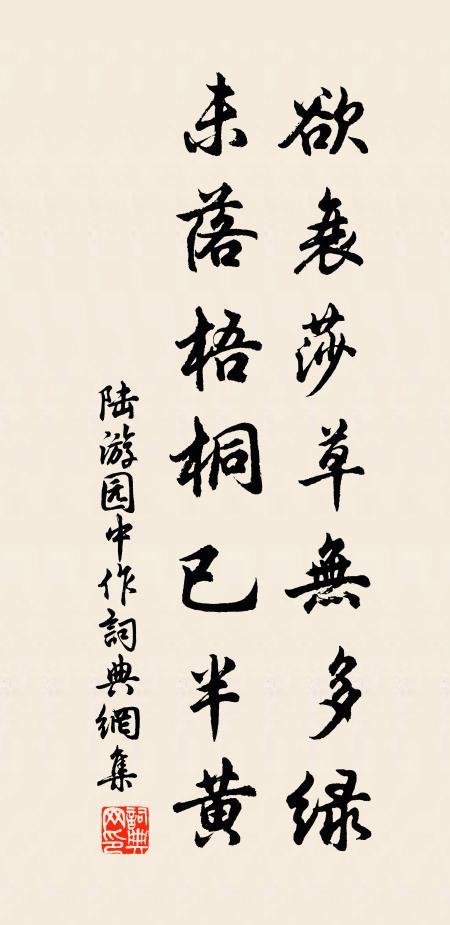 欲衰莎草無多緑
未落梧桐已半黄
陆游园中作詞典網集
詞典网印